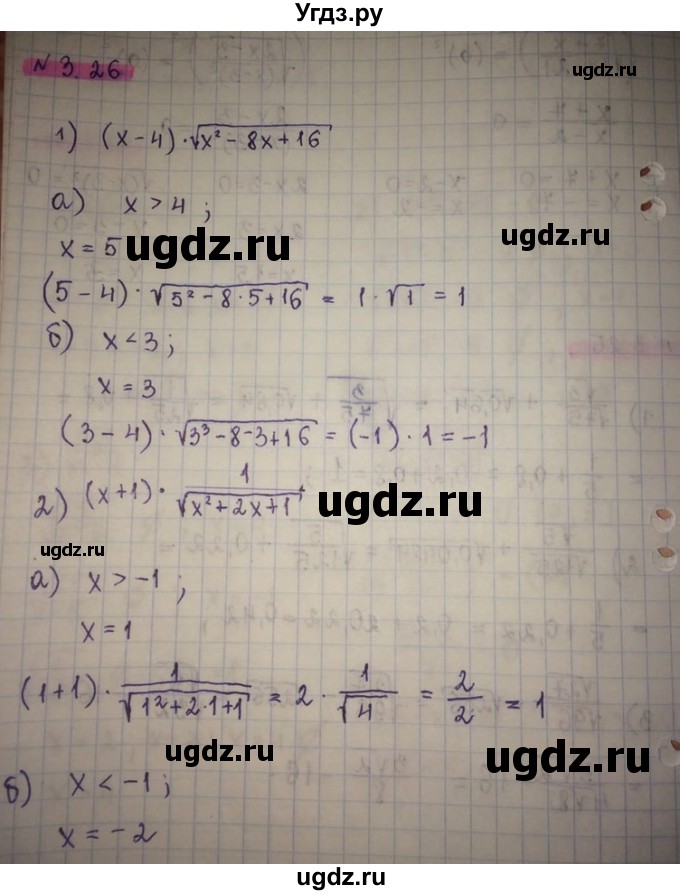 Угдз.ру
№ 3.26
ugdz.ru
1) (x-4)·√x²-8x+16
ugdz.ru
а) x > 4 ;
ugdz.ru
x = 5
ugdz.ru
(5-4)·√5²-8·5+16 = 1·√1 = 1
б) x < 3 ;
ugdz.ru
x = 3
(3-4)·√3³-8-3+16 = (-1)·1 = -1
2) (x+1)· 1/√x²+2x+1
ugdz.ru
ugdz.ru
а) x > -1 ;
ugdz.ru
x = 1
(1+1)· 1/√1²+2·1+1 = 2· 1/√4 = 2/2 = 1
ugdz.ru
ugdz.ru
б) x < -1 ;
x = -2
ugdz.ru
ugdz.ru